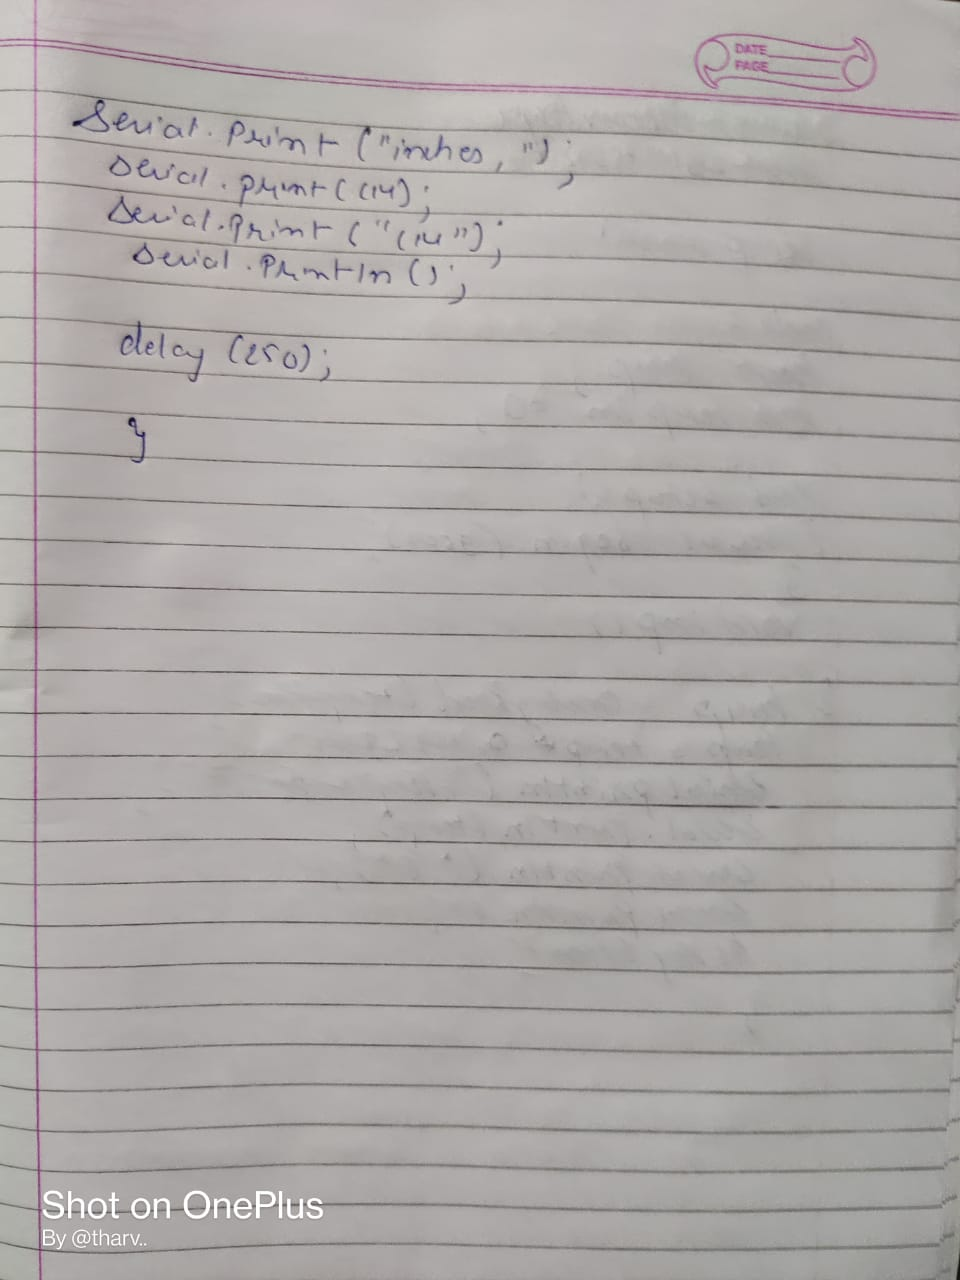 DATE
PAGE
Serial.Print ("inches, ");
Serial.print (cm);
Serial.Print ("cm");
Serial.Println ();
delay (250);
}
Shot on OnePlus
By @tharv..